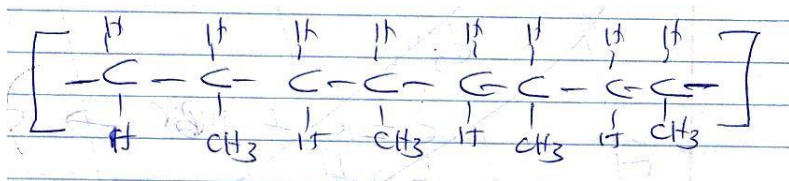 H H H H H H H H
[ -C - C - C - C - C - C - C - C - ]
H CH3 H CH3 H CH3 H CH3